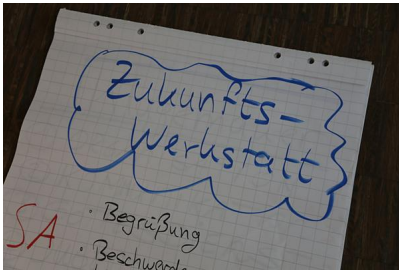 Zukunfts-
Werkstatt
SA
· Begrüßung
· Beschwerde